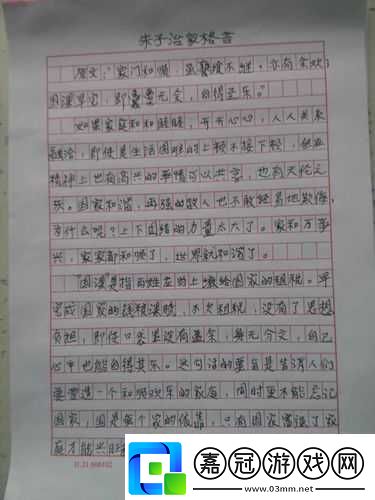 朱子治家格言
原文:“家门和顺,虽饔飧不继,亦有余欢;
国课早完,即囊橐无余,自得至乐。”
如果家庭和和睦睦,开开心心,人人关系
融洽,即使是生活困难的上顿不接下顿,但在
精神上也有高兴的事情可以共享,也有天伦之
乐。国家和谐,再强的敌人也不敢轻易地欺侮,
为什么呢?上下团结的力量太大了。家和万事
兴,家家都和顺了,世界就和谐了。
“国课”是指百姓在的上缴给国家的租税。早
完成国家的钱粮课赋,不欠租税,没有了思想
负担,即使口袋里没有盈余,身无分文,自己
心中也能自得其乐。这句话的要旨是告诉人们
要营造一个和顺欢乐的家庭,同时更不能忘记
国家,国是每个家的依靠,只有国家富强了家
庭才能
嘉冠游戏网
www.03mm.net